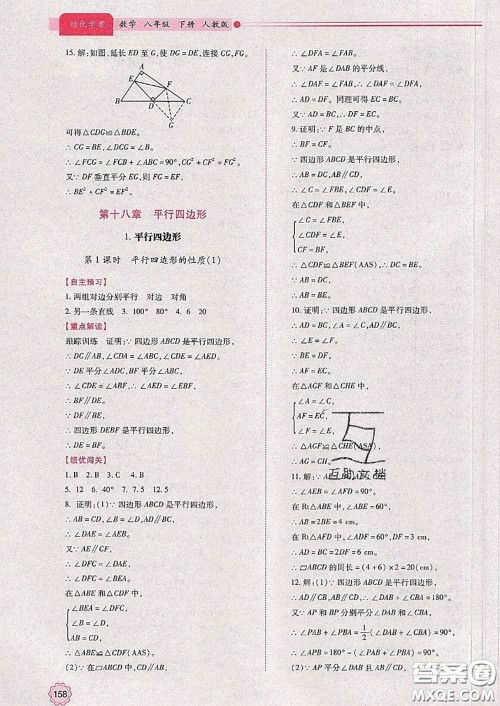 培优学案 数学 八年级 下册 人教版
15. 解:如图,延长 ED 至 G,使 DG=DE,连接 CG,FG.
A
E
F
B
D
C
G
可得△CDG≌△BDE.
∴ CG=BE,∠DCG=∠B.
∴ ∠FCG=∠FCB+∠ABC=90°,CG²+CF²=FG².
又∵ DF 垂直平分 EG,∴ EF=FG.
∴ BE²+CF²=EF².
第十八章 平行四边形
1. 平行四边形
第 1 课时 平行四边形的性质(1)
【自主预习】
1. 两组对边分别平行 对边 对角
2. 另一条直线 3. 100° 80° 4. 6 20
【重点解读】
跟踪训练 证明:∵ 四边形 ABCD 是平行四边形,
∴ DC∥AB,∠ADC=∠ABC,∠CDE=∠AED.
∵ DE 平分∠ADC,BF 平分∠ABC,
∴ ∠CDE=∠ABF.∴ ∠AED=∠ABF.
∴ BF∥DE.
∴ 四边形 DEBF 是平行四边形.
∴ DE=BF.
【绩优闯关】
1. B 2. B 3. C 4. B
5. 12 6. 40° 7. 7.5 12.5
8. 证明:(1)∵ 四边形 ABCD 是平行四边形,
∴ AB=CD,∠B=∠D,AB∥CD.
又∵ AE∥CF,
∴ ∠DFC=∠DAE.
∵ AD∥BC,
∴ ∠DFC=∠BEA.
在△ABE 与△CDF 中,
∠BEA=∠DFC,
∠B=∠D,
AB=CD,
∴ △ABE≌△CDF(AAS).
(2)∵ 在▱ABCD 中,AB∥CD,
∴ ∠DFA=∠FAB.
又∵ AF 是∠DAB 的平分线,
∴ ∠DAF=∠FAB.∴ ∠DAF=∠DFA.
∴ AD=DF. 同理可得 EC=BC.
又∵ AD=BC,∴ DF=EC.
9. 证明:∵ F 是 BC 的中点,
∴ BF=CF.
∵ 四边形 ABCD 是平行四边形,
∴ AB=DC,AB∥CD.
∴ ∠C=∠FBE,∠CDF=∠E.
在△CDF 和△BEF 中,
∠C=∠FBE,
∠CDF=∠E,
CF=BF,
∴ △CDF≌△BEF(AAS).∴ BE=DC.
∵ AB=DC,∴ AB=BE.
10. 证明:∵ 四边形 ABCD 是平行四边形,
∴ AD=BC,∠A=∠C,AD∥BC.
∴ ∠E=∠F.
又∵ BE=DF,
∴ AD+DF=CB+BE,
即 AF=CE.
在△AGF 和△CHE 中,
∠A=∠C,
AF=EC,
∠F=∠E,
∴ △AGF≌△CHE(ASA).
∴ AG=CH.
互助文档
∴ ∠AEB=∠AFD=90°.
在 Rt△ABE 中,∠BAE=30°,
∴ AB=2BE=4 cm.
在 Rt△ADF 中,∠ADF=60°,DF=3 cm,
∴ AD=BC=6 cm.
∴ ▱ABCD 的周长=(4+6)×2=20(cm).
12. 解:(1)∵ 四边形 ABCD 是平行四边形,
∴ AD∥BC.∴ ∠DAB+∠CBA=180°.
又∵ AP 和 BP 分别平分∠DAB 和∠CBA,
∴ ∠PAB+∠PBA=1/2(∠DAB+∠CBA)=90°.
∴ ∠APB=180°-(∠PAB+∠PBA)=90°.
(2)∵ AP 平分∠DAB 且 AB∥CD,
158
答案圈
MXQE.COM